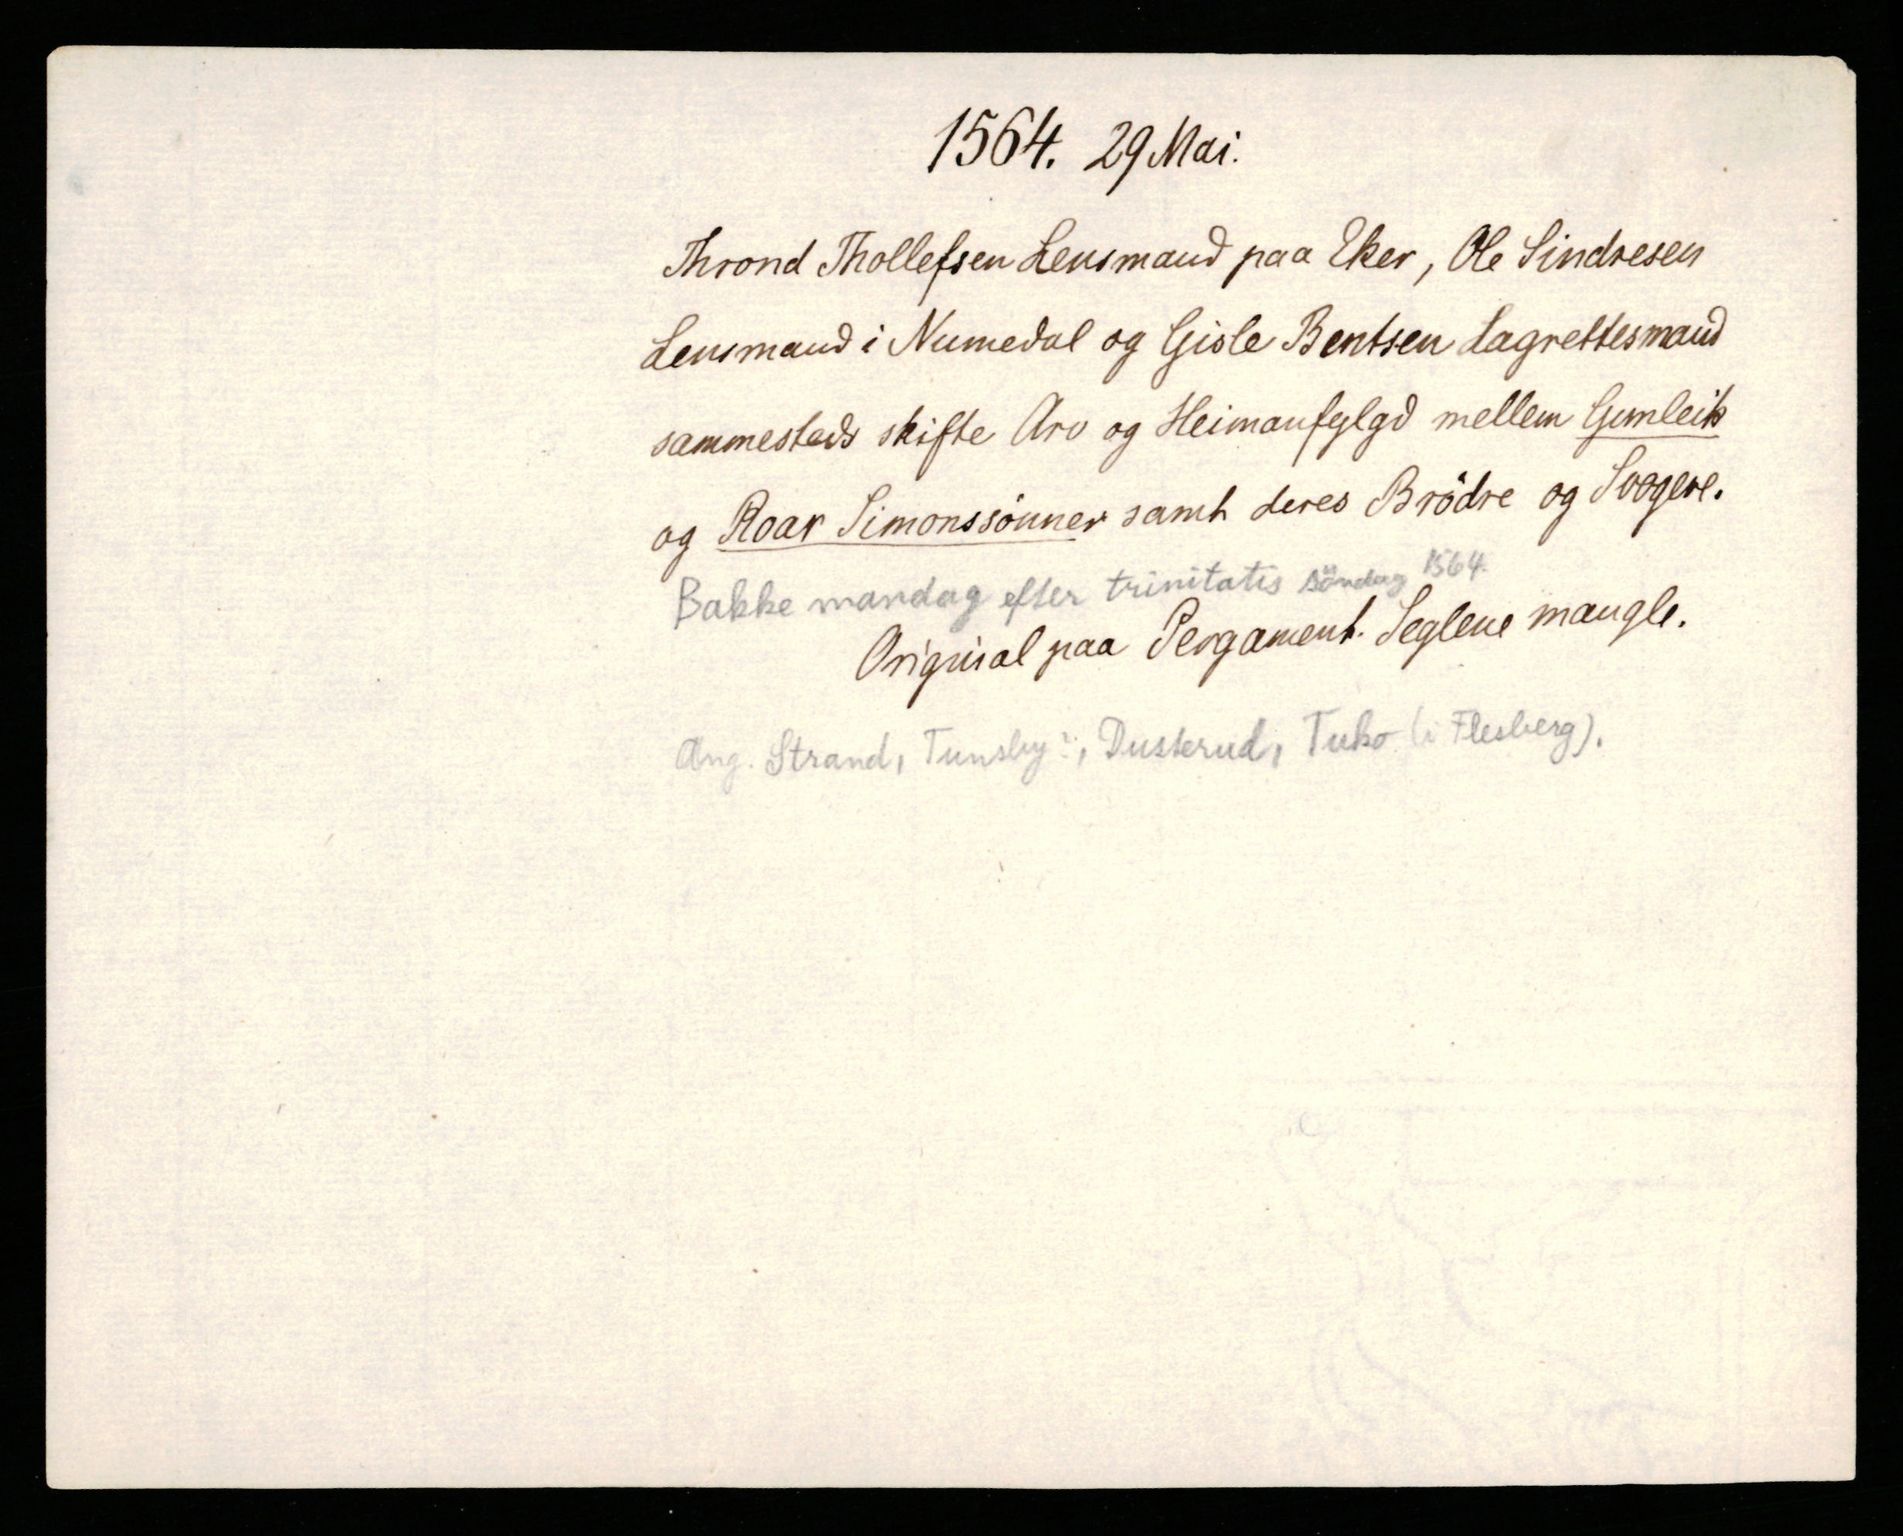 1564. 29 Mai.
Thrond Thollefsen Lensmand paa Eker, Ole Sindresen
Lensmand i Numedal og Gisle Bentsen Lagrettesmand
sammesteds skifte Arv og Heimanfylgd mellem Gunleik
og Roar Simonssönner samt deres Brödre og Svogere.
Bakke mandag efter trinitatis söndag 1564.
Original paa Pergament. Seglene mangle.
Ang. Strand, Tunsby?, Dusterud, Tuko (i Flesberg).